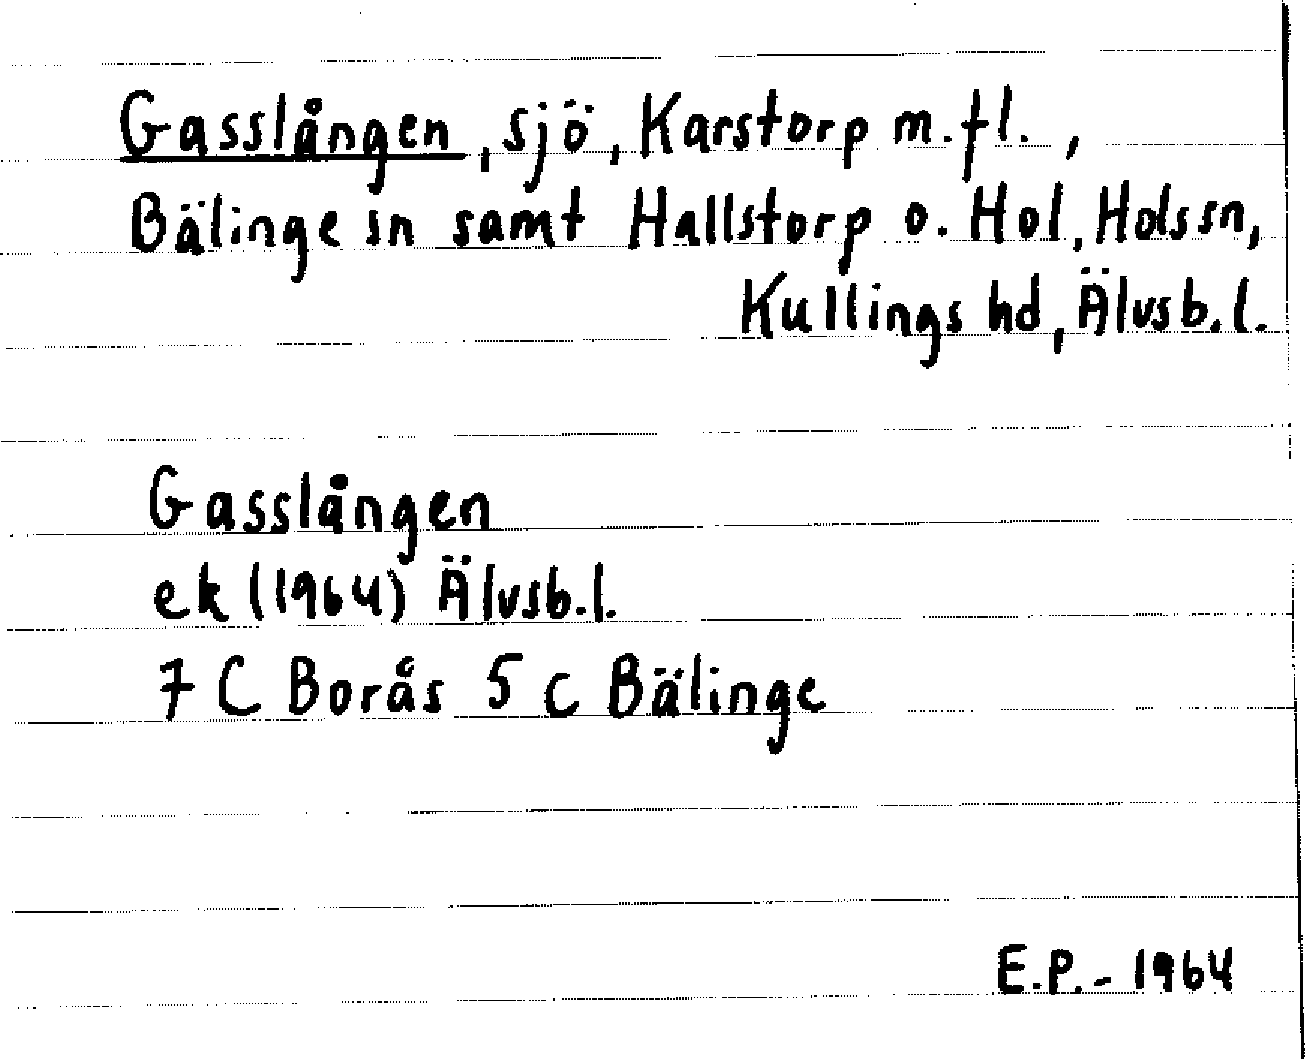 Gasslången, sjö, Karstorp m.fl.,
Bälinge sn samt Hallstorp o. Hol, Hols sn,
Kullings hd, Älvsb.l.
Gasslången
ek (1964) Älvsb.l.
7 C Borås 5 c Bälinge
E.P. - 1964